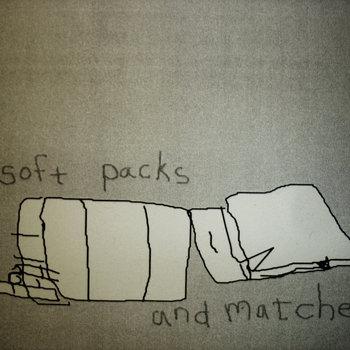 soft packs
and matche